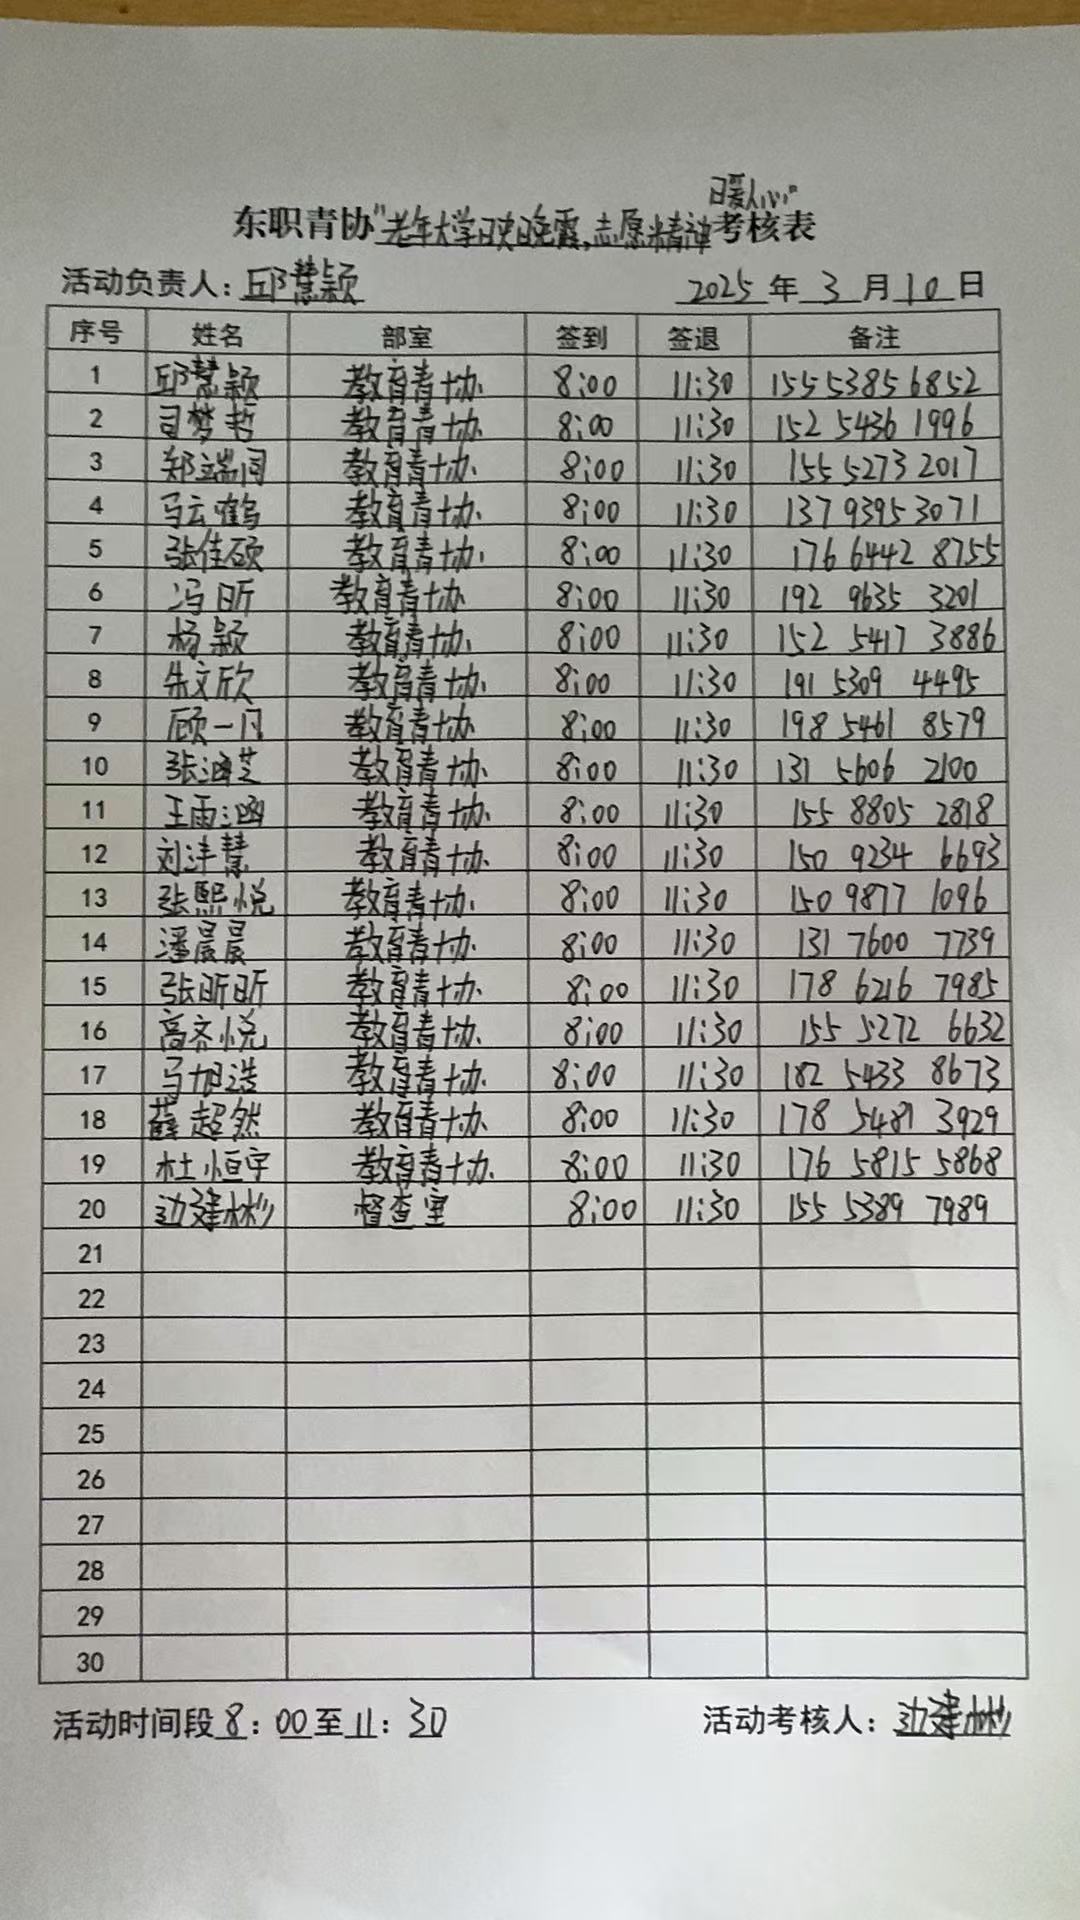 暖人心"
东职青协"老年大学映晚霞,志愿精神考核表
活动负责人:邱慧颖 2025年3月10日
序号 姓名 部室 签到 签退 备注
1 邱慧颖 教育青协 8:00 11:30 155 5385 6852
2 司梦哲 教育青协 8:00 11:30 152 5436 1996
3 郑端闾 教育青协 8:00 11:30 155 5273 2017
4 马云鹤 教育青协 8:00 11:30 137 9395 3071
5 张佳硕 教育青协 8:00 11:30 176 6442 8755
6 冯昕 教育青协 8:00 11:30 192 9635 3201
7 杨颖 教育青协 8:00 11:30 152 5417 3886
8 朱文欣 教育青协 8:00 11:30 191 5309 4495
9 顾一闩 教育青协 8:00 11:30 198 5461 8579
10 张涵芝 教育青协 8:00 11:30 131 5606 2100
11 王雨涵 教育青协 8:00 11:30 155 8805 2818
12 刘沣慧 教育青协 8:00 11:30 150 9234 6693
13 张熙悦 教育青协 8:00 11:30 150 9877 1096
14 潘晨晨 教育青协 8:00 11:30 131 7600 7739
15 张昕昕 教育青协 8:00 11:30 178 6216 7985
16 高齐悦 教育青协 8:00 11:30 155 5272 6632
17 马旭浩 教育青协 8:00 11:30 182 5433 8673
18 薛超然 教育青协 8:00 11:30 178 5481 3929
19 杜恒宇 教育青协 8:00 11:30 176 5815 5868
20 边建彬 督查室 8:00 11:30 155 5389 7989
21
22
23
24
25
26
27
28
29
30
活动时间段8:00至11:30 活动考核人:边建彬